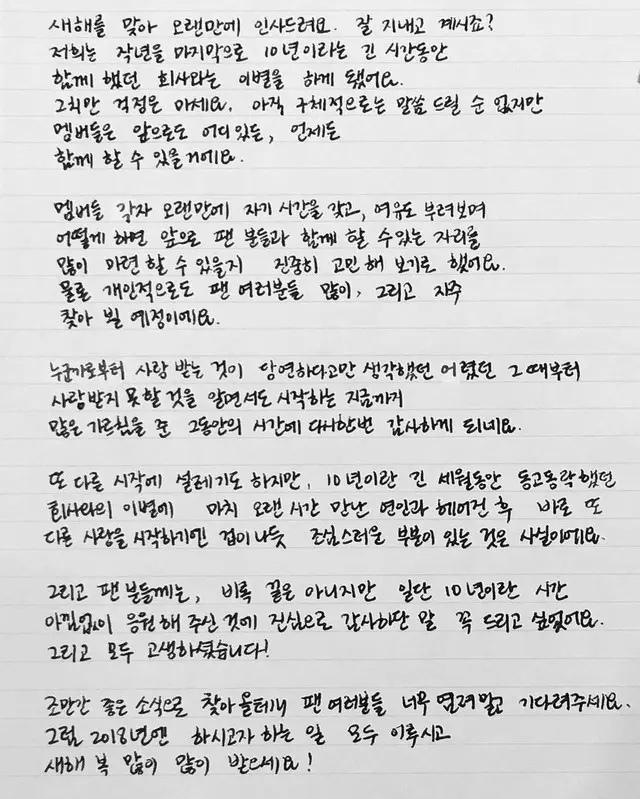 새해를 맞아 오랜만에 인사드려요. 잘 지내고 계시죠?
저희는 작년을 마지막으로 10년이라는 긴 시간동안
함께 했던 회사와는 이별을 하게 됐어요.
그치만 걱정은 마세요. 아직 구체적으로는 말씀 드릴 순 없지만
멤버들은 앞으로도 어디있든, 언제든
함께 할 수 있을거에요.
멤버들 각자 오랜만에 자기 시간을 갖고, 여유도 부려보며
어떻게 하면 앞으로 팬 분들과 함께 할 수있는 자리를
많이 마련할 수 있을지 진중히 고민해 보기로 했어요.
물론 개인적으로도 팬 여러분들 많이, 그리고 자주
찾아 뵐 예정이에요.
누군가로부터 사랑 받는 것이 당연하다고만 생각했던 어렸던 그 때부터
사랑받지 못할 것을 알면서도 시작하는 지금까지
많은 가르침을 준 그동안의 시간에 다시한번 감사하게 되네요.
또 다른 시작에 설레기도 하지만, 10년이란 긴 세월동안 동고동락했던
회사와의 이별에 마치 오랜 시간 만난 연인과 헤어진 후 바로 또
다른 사랑을 시작하기엔 겁이나듯 조심스러운 부분이 있는 것은 사실이에요.
그리고 팬 분들께는, 비록 끝은 아니지만 일단 10년이란 시간
아낌없이 응원해 주신 것에 진심으로 감사하단 말 꼭 드리고 싶었어요.
그리고 모두 고생하셨습니다!
조만간 좋은 소식으로 찾아올테니 팬 여러분들 너무 염려말고 기다려주세요.
그럼 2018년엔 하시고자 하는 일 모두 이루시고
새해 복 많이 많이 받으세요!